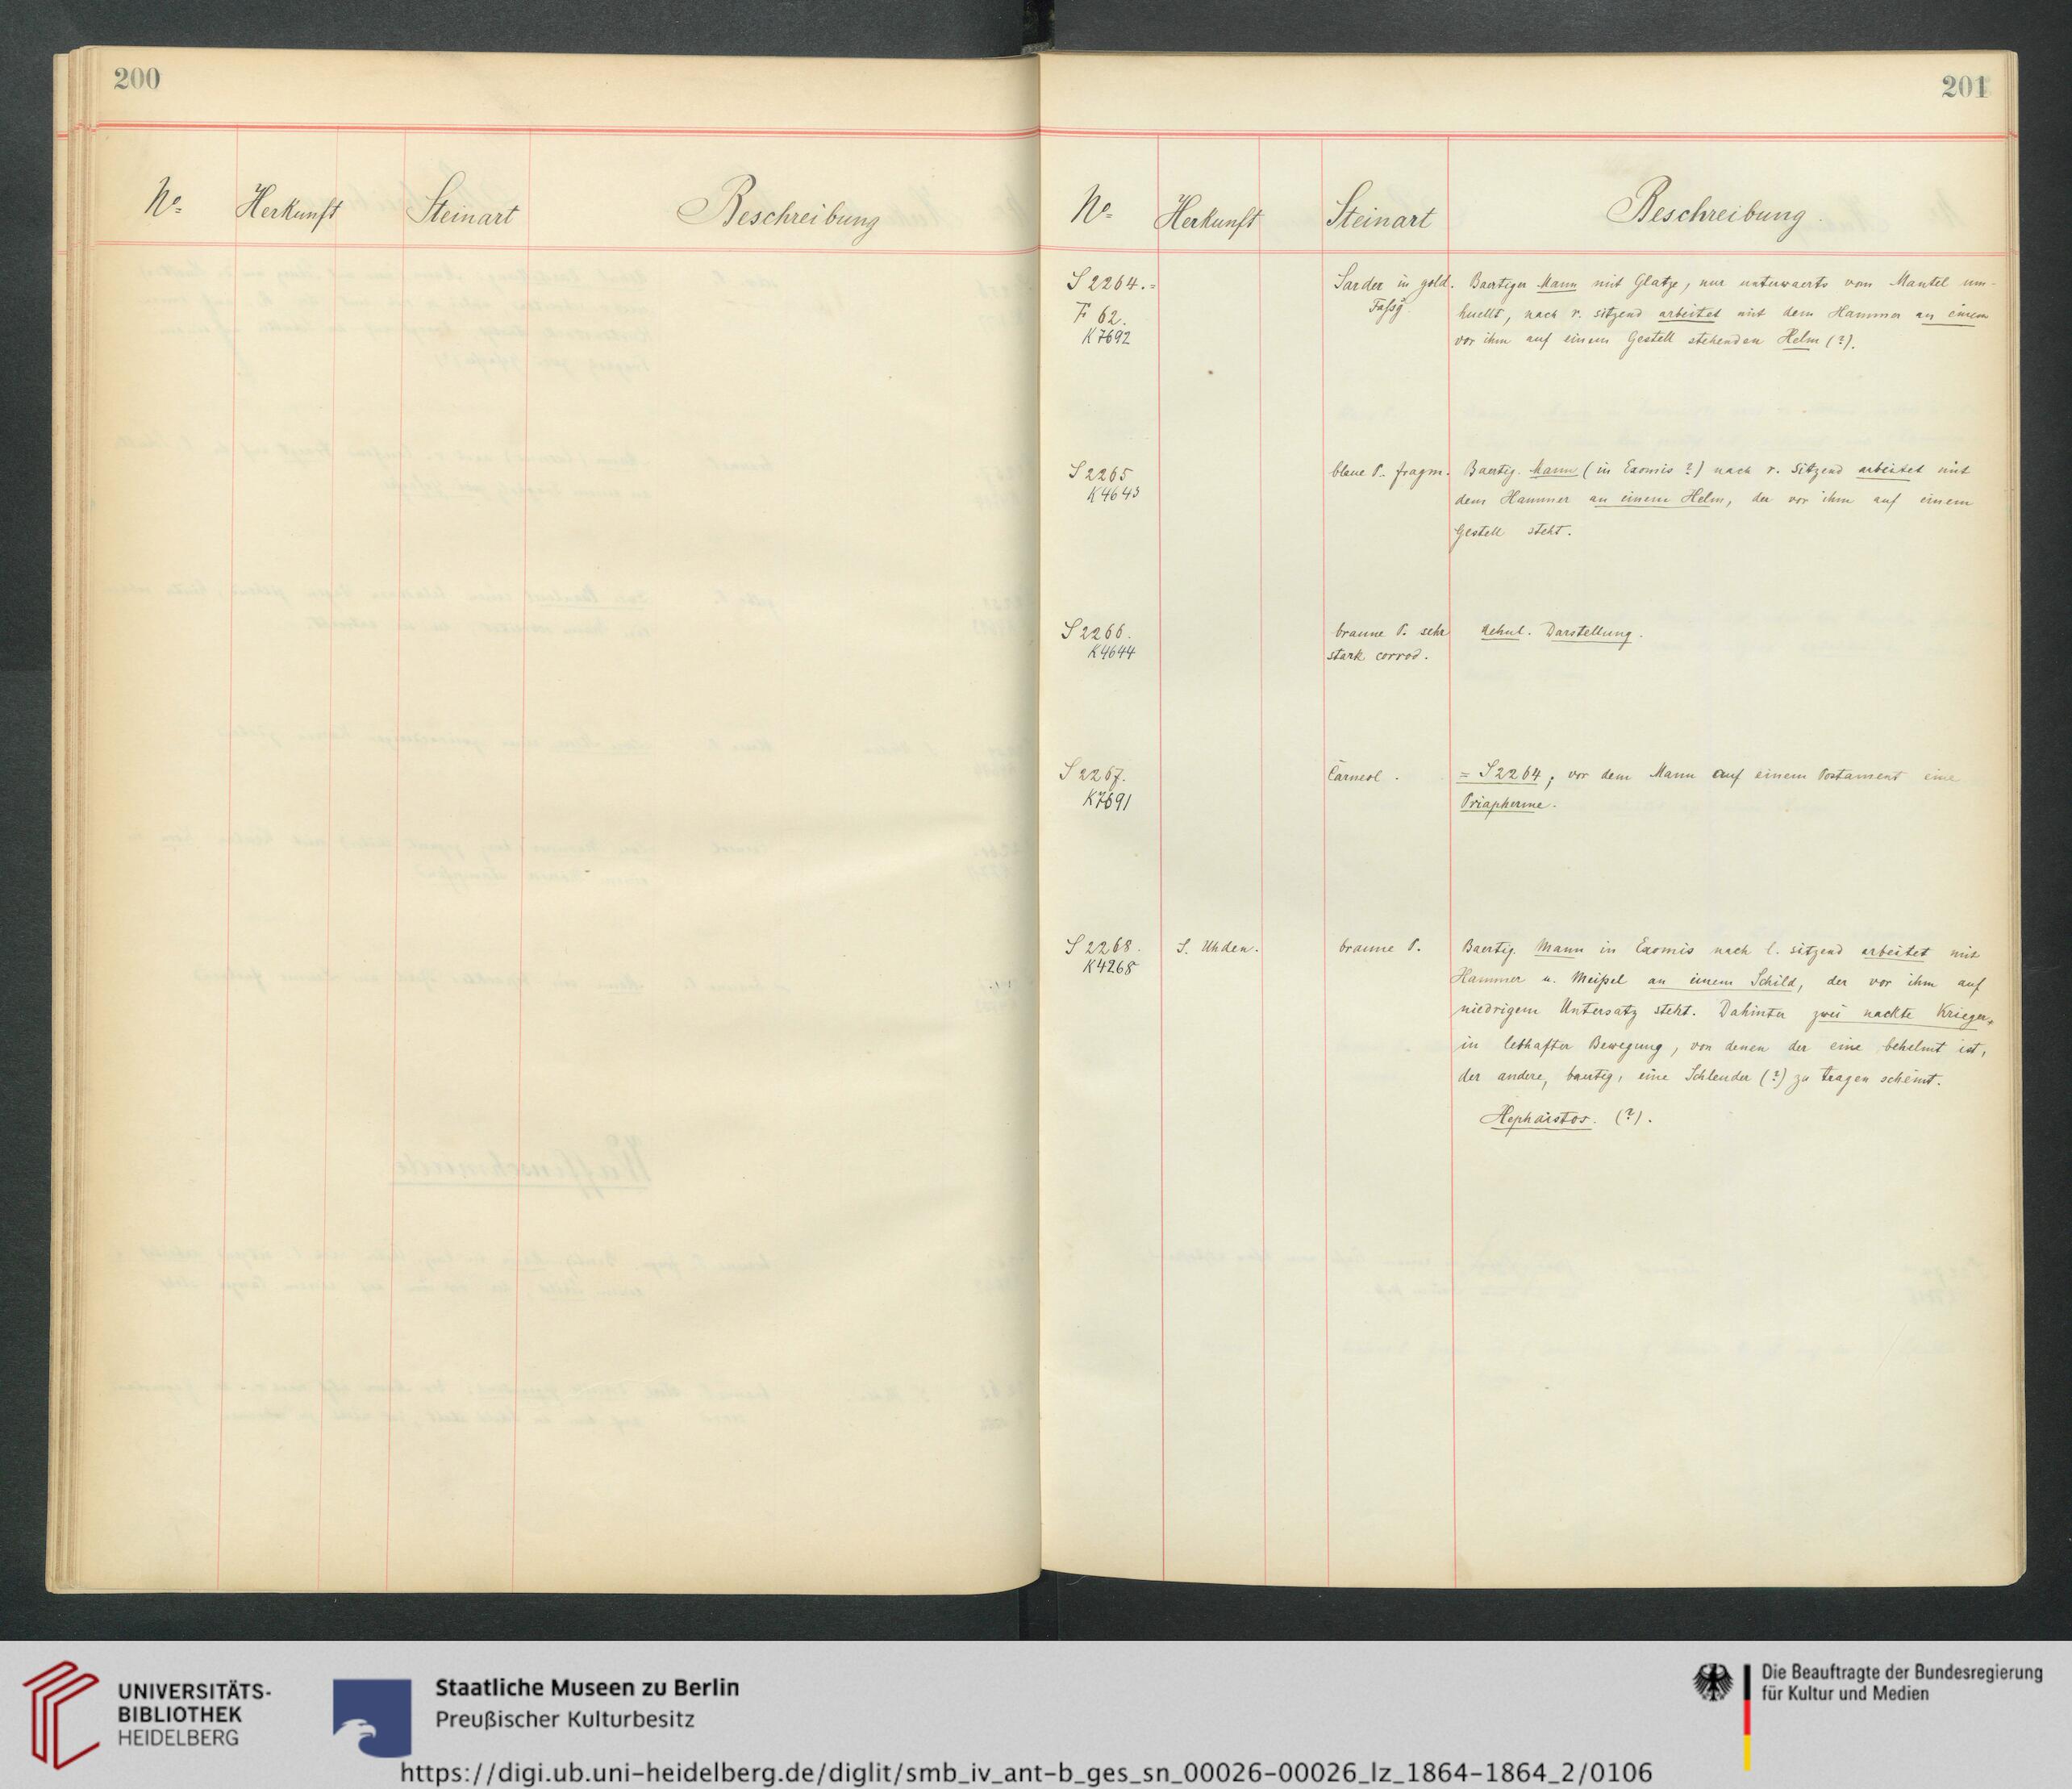 200
No. Herkunft Steinart Beschreibung
201
No. Herkunft Steinart Beschreibung.
S 2264.= Sarder in gold. Baertiger Mann mit Glatze, nur unterwaerts vom Mantel um-
F 62. Fassg huellt, nach r. sitzend arbeitet mit dem Hammer an einem
K 7692 vor ihm auf einem Gestell stehenden Helm (?).
S 2265 blaue P. fragm. Baertig. Mann (in Exomis?) nach r. sitzend arbeitet mit
K 4643 dem Hammer an einem Helm, der vor ihm auf einem
Gestell steht.
S 2266. braune P. sehr Aehnl. Darstellung.
K 4644 stark corrod.
S 2267. Carneol. = S 2264, vor dem Mann auf einem Postament eine
K 7691 Priapherme.
S 2268. S. Uhden. braune P. Baertig. Mann in Exomis nach l. sitzend arbeitet mit
K 4268 Hammer u. Meißel an einem Schild, der vor ihm auf
niedrigem Untersatz steht. Dahinter zwei nackte Krieger,
in lebhafter Bewegung, von denen der eine behelmt ist,
der andere, baertig, eine Schleuder (?) zu tragen scheint.
Hephaistos. (?).
UNIVERSITÄTS-
BIBLIOTHEK
HEIDELBERG
Staatliche Museen zu Berlin
Preußischer Kulturbesitz
Die Beauftragte der Bundesregierung
für Kultur und Medien
https://digi.ub.uni-heidelberg.de/diglit/smb_iv_ant-b_ges_sn_00026-00026_lz_1864-1864_2/0106